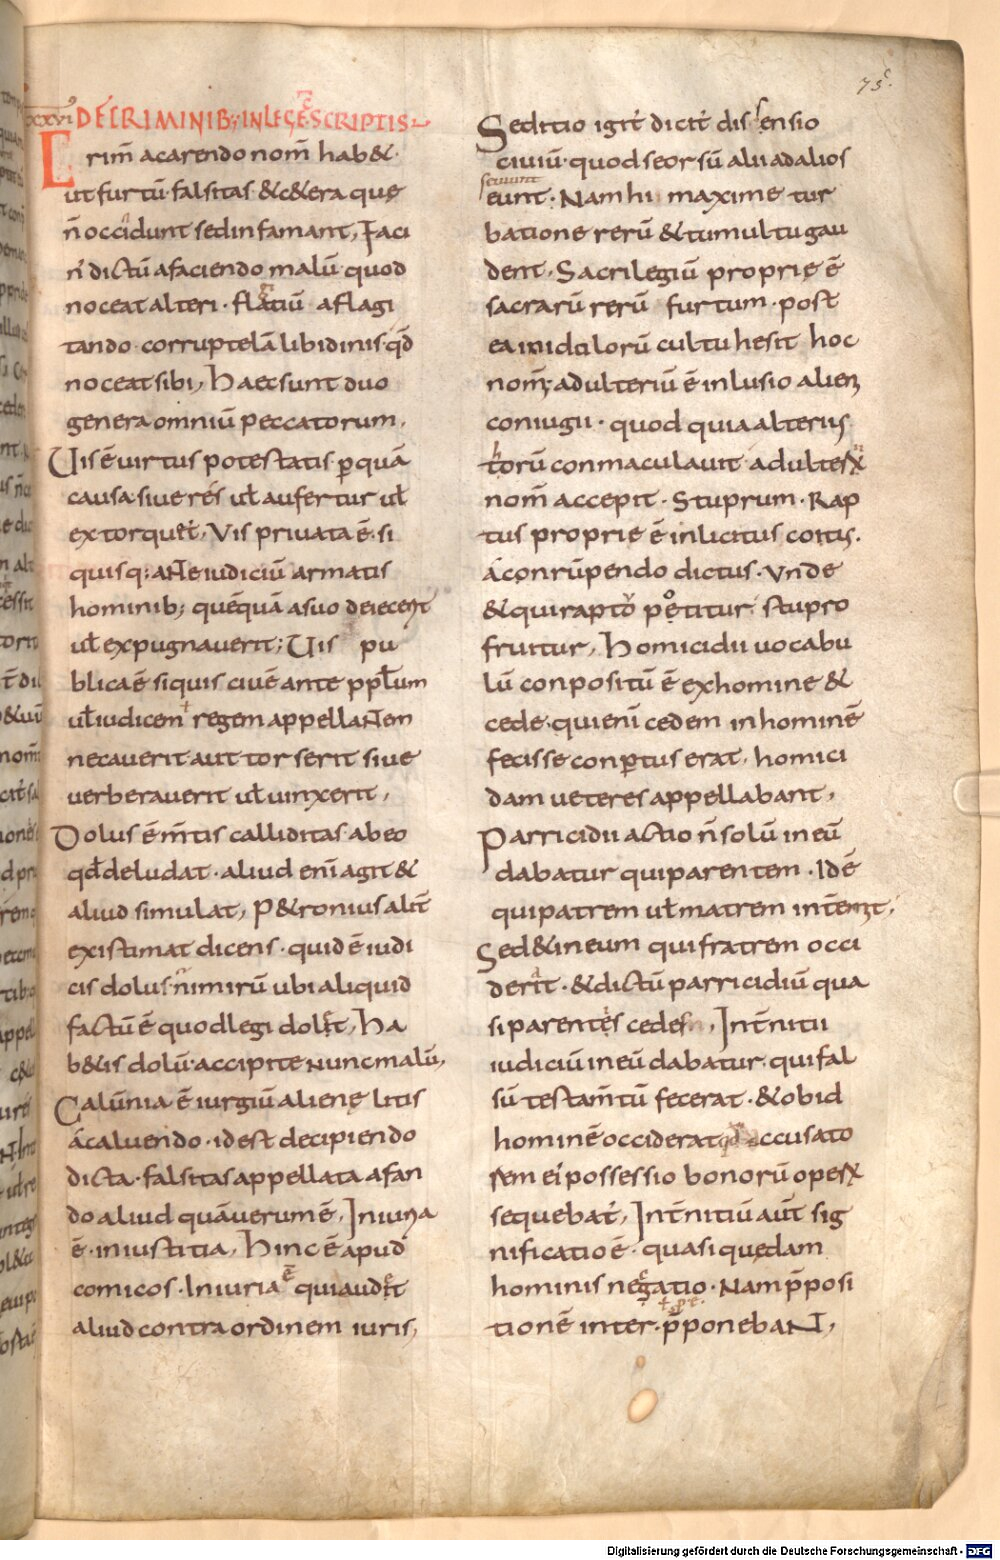 75.
XXVI DE CRIMINIB; IN LEGE SCRIPTIS
Crim̄ acarendo nom̄ hab&·
ut furtū· falsitas &c&era quę
n̄ occidunt sed infamant, Faci
n' dictū afaciendo malū· quod
noceat alteri· flatiū aflagi
tando· corruptelā libidinis· qd̄
noceat sibi, Haec sunt duo
genera omniū peccatorum,
Uis ē uirtus potestatis ꝑ quā
causa· siue res ul̄ aufertur ul̄
extorquet̄, Vis priuata ē· si
quisq; ante iudiciū armatis
hominib; quēquā asuo deiecerit
ul̄ expugnauerit; Uis pu
blica ē si quis ciuē ante pp̄lum
ul̄ iudicem ł regem appellantem
necauerit aut torserit siue
uerberauerit ul̄ uinxerit,
Dolus ē m̄tis calliditas· ab eo
qd̄ deludat· aliud eni agit &
aliud simulat, P&ronius alit̄
existimat dicens· quid ē iudi
cis dolus· nimirū ubi aliquid
factū ē quod legi dolet, Ha
b&is dolū· accipite nunc malū,
Calūnia ē iurgiū alienę litis
á caluendo· id est decipiendo
dicta· falsitas appellata afan
do aliud quā uerum ē, Iniuria
ē· iniustitia, Hinc ē apud
comicos· Iniuria ē qui audet
aliud contra ordinem iuris,
Seditio igit̄ dicit̄ dissensio
ciuiū· quod seorsū alii ad alios
seuiunt
eunt· Nam hi maxime tur
batione rerū & tumultu gau
dent, Sacrilegiū proprie ē
sacrarū rerū furtum· post
ea in idolorū cultu hesit hoc
nom̄; adulteriū ē inlusio alieni
coniugii· quod quia alterius
torū conmaculauit adulterii
nom̄ accepit· Stuprum· Rap
tus proprie ē inlicitus coitus·
á conrūpendo dictus· Vnde
& qui rapto potitur stupro
fruitur, Homicidii uocabu
lū conpositū ē ex homine &
cede· qui eni cedem in hominē
fecisse conꝑtus erat, homici
dam ueteres appellabant,
Parricidii actio n̄ solū in eū
dabatur qui parentem· Idē
qui patrem ul̄ matrem intem̄t,
Sed & in eum qui fratrem occi
derit· & dictū parricidiū qua
si parentis cede, Int̄nitii
iudiciū in eū dabatur· qui fal
sū testam̄tū fecerat· & ob id
hominē occiderat accusato
rem ei possessio bonorū
sequebat̄, Int̄nitiū aut̄ sig
nificatio ē· quasi quędam
hominis negatio· Nam p̄posi
tionē inter· p̄ ponebant,
Digitalisierung gefördert durch die Deutsche Forschungsgemeinschaft - DFG